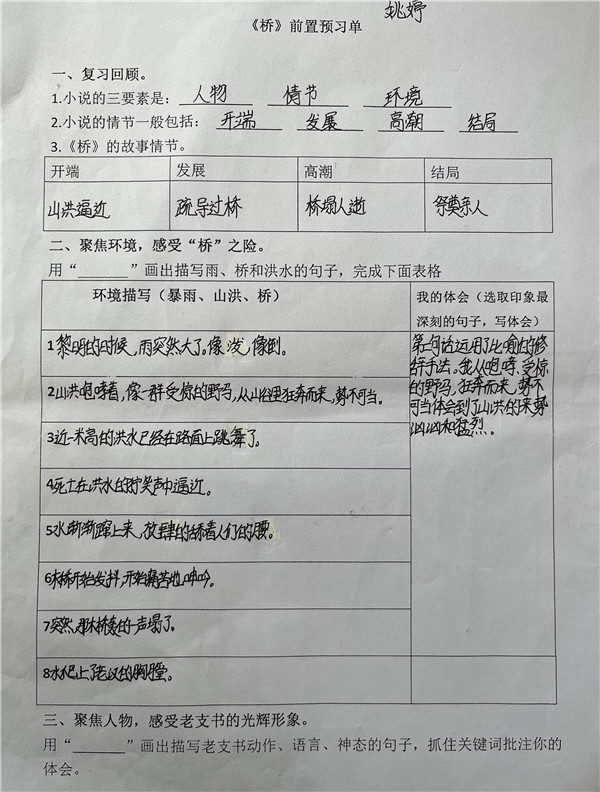 姚婷
《桥》前置预习单
一、复习回顾。
1.小说的三要素是： 人物 情节 环境
2.小说的情节一般包括： 开端 发展 高潮 结局
3.《桥》的故事情节。
开端 发展 高潮 结局
山洪逼近 疏导过桥 桥塌人逝 祭奠亲人
二、聚焦环境，感受“桥”之险。
用“______”画出描写雨、桥和洪水的句子，完成下面表格
环境描写（暴雨、山洪、桥）
我的体会（选取印象最
深刻的句子，写体会）
1黎明的时候，雨突然大了。像泼，像倒。
2山洪咆哮着，像一群受惊的野马，从山谷里狂奔而来，势不可当。
3近一米高的洪水已经在路面上跳舞了。
4死亡在洪水的狞笑声中逼近。
5水渐渐蹿上来，放肆的舔着人们的腰。
6木桥开始发抖，开始痛苦地呻吟。
7突然，那木桥轰的一声塌了。
8水爬上了老汉的胸膛。
第二句话运用了比喻的修
辞手法。我从咆哮、受惊
的野马，狂奔而来，势不
可当体会到了山洪的来势
汹汹和猛烈。
三、聚焦人物，感受老支书的光辉形象。
用“______”画出描写老支书动作、语言、神态的句子，抓住关键词批注你的
体会。